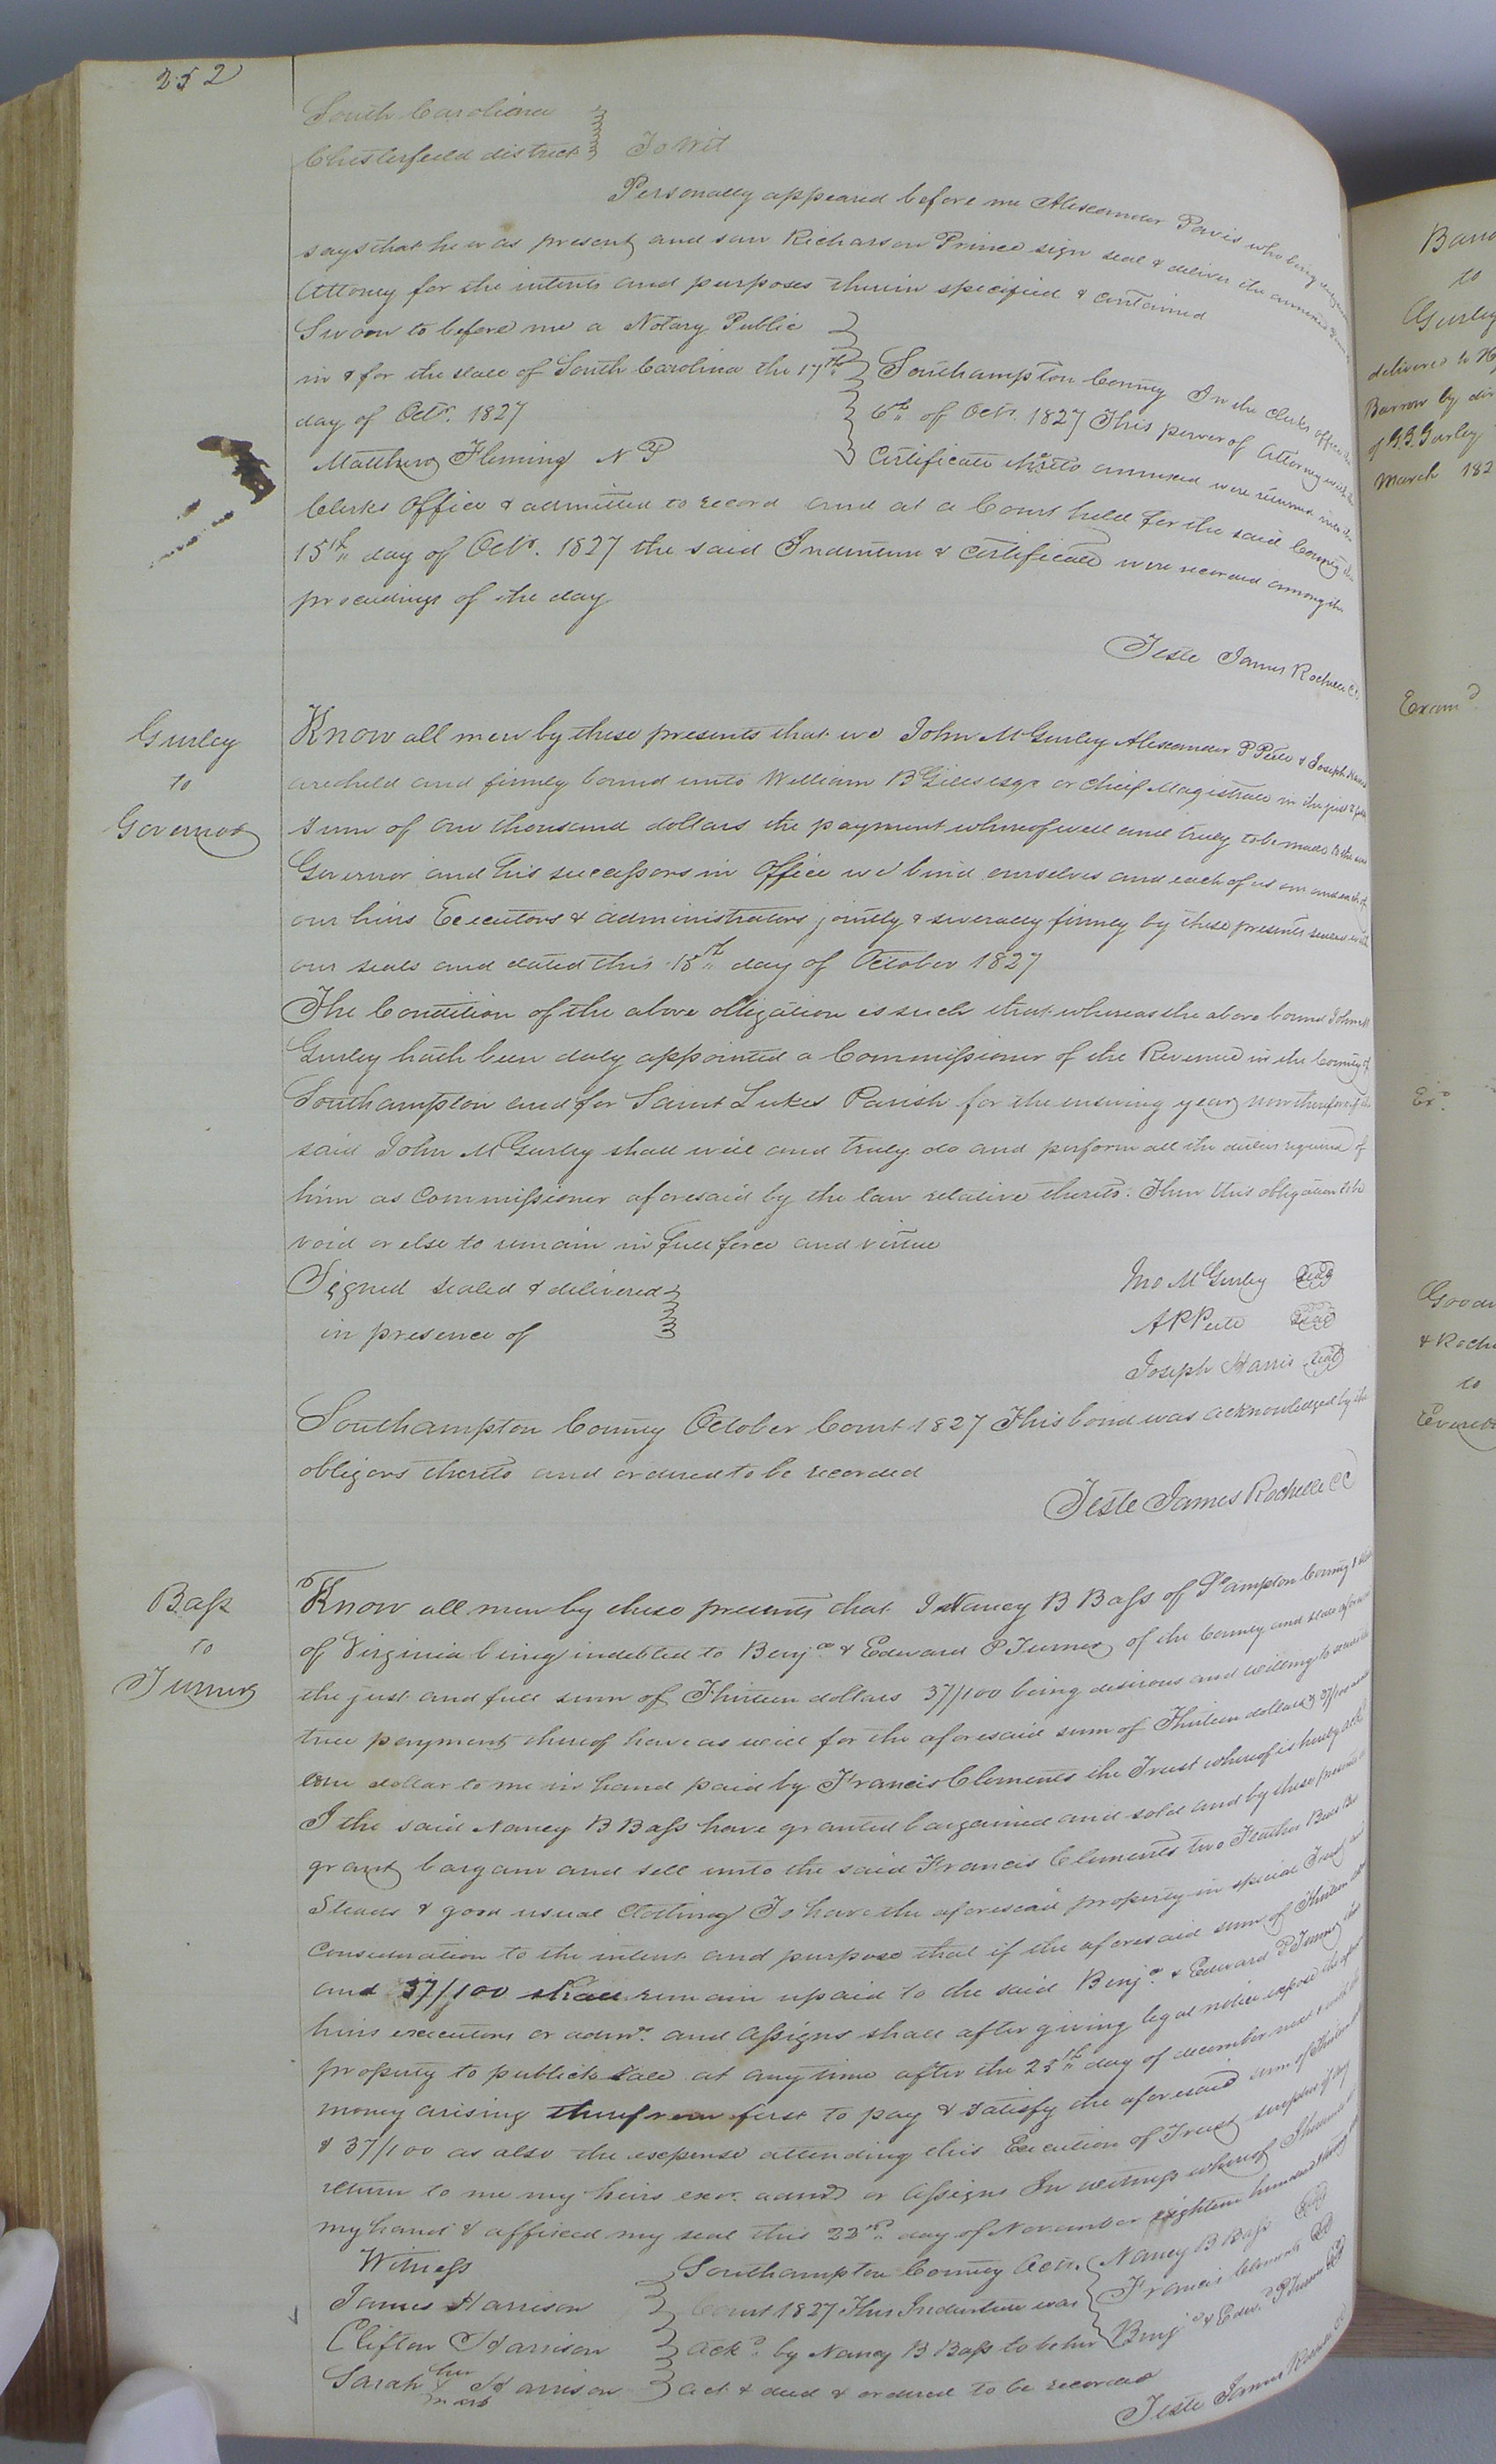 252
South Carolina
Chesterfield district To Wit
Personally appeared before me Alexander Pavis who being duly
says that he was present and saw Richarson Prince sign seal & deliver the annexed
Attorney for the intents and purposes therein specified & contained
Sworn to before me a Notary Public
in & for the state of South Carolina the 17th
day of Octr. 1827
Matthew Fleming N P
Southampton County In the Clerks office the
6th of Octr. 1827 This power of Attorney with the
Certificate thereto annexed were returned into the
Clerks Office & admitted to record and at a Court held for the said County the
15th day of Octr. 1827 the said Indenture & Certificate were recorded among the
proceedings of the day
Teste James Rochelle CC
Gurley
to
Governor
Know all men by these presents that we John M Gurley Alexander P Peete & Joseph Harris
are held and firmly bound unto William B Giles esqr or Chief Magistrate in the just & full
sum of one thousand dollars the payment whereof well and truly to be made to the said
Governor and his successors in Office we bind ourselves and each of us our and each of
our heirs Executors & administrators jointly & severally firmly by these presents sealed with
our seals and dated this 15th day of October 1827
The Condition of the above obligation is such that whereas the above bound John M
Gurley hath been duly appointed a Commissioner of the Revenue in the County of
Southampton and for Saint Lukes Parish for the ensuing year now therefore if the
said John M Gurley shall well and truly do and perform all the duties required of
him as Commissioner aforesaid by the law relative thereto. Then this obligation to be
void or else to remain in full force and virtue
Signed sealed & delivered
in presence of
Jno M Gurley Seal
A P Peete Seal
Joseph Harris Seal
Southampton County October Court 1827 This bond was acknowledged by the
obligors thereto and ordered to be recorded
Teste James Rochelle CC
Bass
to
Turner
Know all men by these presents that I Nancy B Bass of So ampton County & State
of Virginia being indebted to Benja & Edward P Turner of the County and State aforesaid
the just and full sum of Thirteen dollars 37/100 being desirous and willing to secure the
true payment thereof have as well for the aforesaid sum of Thirteen dollars & 37/100 and
one dollar to me in hand paid by Francis Clements the Trust whereof is hereby ack
I the said Nancy B Bass have granted bargained and sold and by these presents do
grant bargain and sell unto the said Francis Clements two Feather Beds Bed
Steads & good usual Clothing To have the aforesaid property in special Trust and
Consideration to the intent and purpose that if the aforesaid sum of Thirteen
and 37/100 shall remain upaid to the said Benja. & Edward P Turner
heirs executors or admr. and Assigns shall after giving legal notice expose the
property to publick sale at any time after the 25th day of december next & with the
money arising therefrom first to pay & satisfy the aforesaid sum of Thirteen
& 37/100 as also the expense attending this Execution of Trust surplus if any
return to me my heirs exor. admr or Assigns In witness whereof I
my hand & affixed my seal this 22nd day of November eighteen hundred
Witness
James Harrison
Clifton Harrison
Sarah her X mark Harrison
Southampton County Octr.
Court 1827 This Indenture was
Ackd. by Nancy B Bass to be her
act & deed & ordered to be recorded
Nancy B Bass Seal
Francis Clements Seal
Benja & Edwd. P Turner Seal
Teste James Rochelle CC
Barr
to
Gurley
delivered to
Barrow by
of G.B. Gurley
March 182
Examd.
Exd.
to
Everett